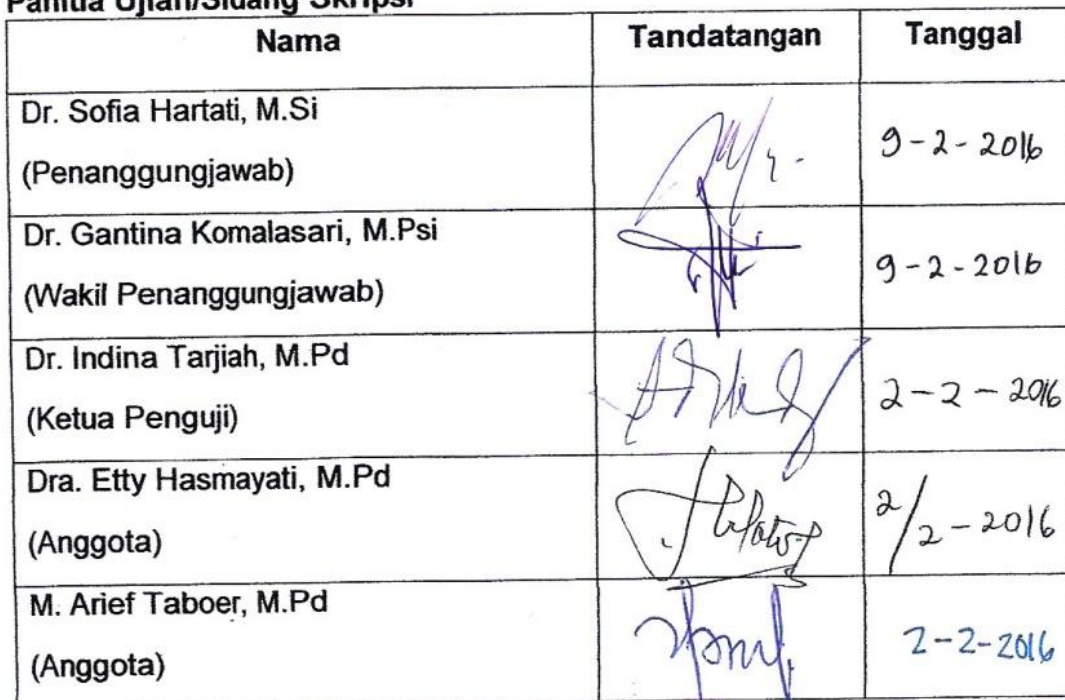 Panitia Ujian/Sidang Skripsi
Nama Tandatangan Tanggal
Dr. Sofia Hartati, M.Si
(Penanggungjawab)
9-2-2016
Dr. Gantina Komalasari, M.Psi
(Wakil Penanggungjawab)
9-2-2016
Dr. Indina Tarjiah, M.Pd
(Ketua Penguji)
2-2-2016
Dra. Etty Hasmayati, M.Pd
(Anggota)
2/2-2016
M. Arief Taboer, M.Pd
(Anggota)
2-2-2016